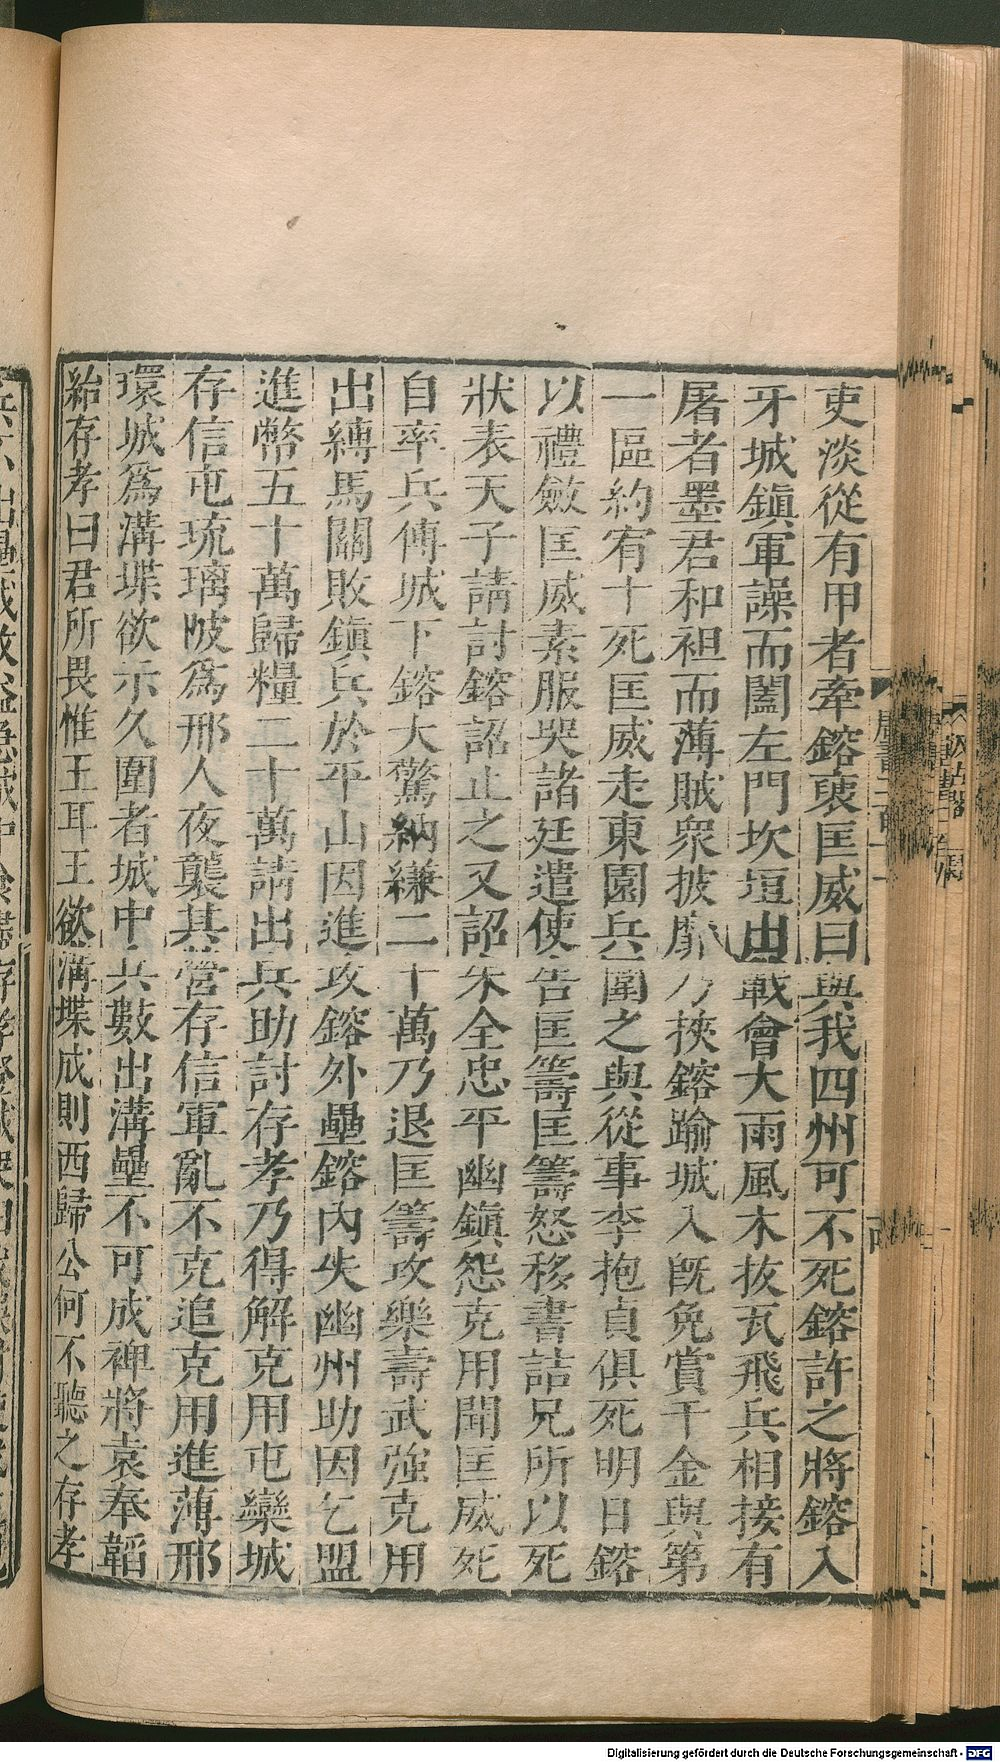 吏淡從有甲者牽鎔衷匡威曰與我四州可不死鎔許之將鎔入
牙城鎮軍譟而闔左門坎垣出戰會大雨風木拔瓦飛兵相接有
屠者墨君和袒而薄賊衆披靡乃挾鎔踰城入既免賞千金與第
一區約宥十死匡威走東園兵圍之與從事李抱貞俱死明日鎔
以禮斂匡威素服哭諸廷遣使告匡籌匡籌怒移書詰兄所以死
狀表天子請討鎔詔止之又詔朱全忠平幽鎮怨克用聞匡威死
自率兵傅城下鎔大驚納縑二十萬乃退匡籌攻樂壽武強克用
出縛馬關敗鎮兵於平山因進攻鎔外壘鎔內失幽州助因乞盟
進幣五十萬歸糧二十萬請出兵助討存孝乃得解克用屯欒城
存信屯琉璃陂爲邢人夜襲其營存信軍亂不克追克用進薄邢
環城爲溝堞欲示久圍者城中兵數出溝壘不可成裨將袁奉韜
紿存孝曰君所畏惟王耳王欲溝堞成則西歸公何不聽之存孝
Digitalisierung gefördert durch die Deutsche Forschungsgemeinschaft - DFG